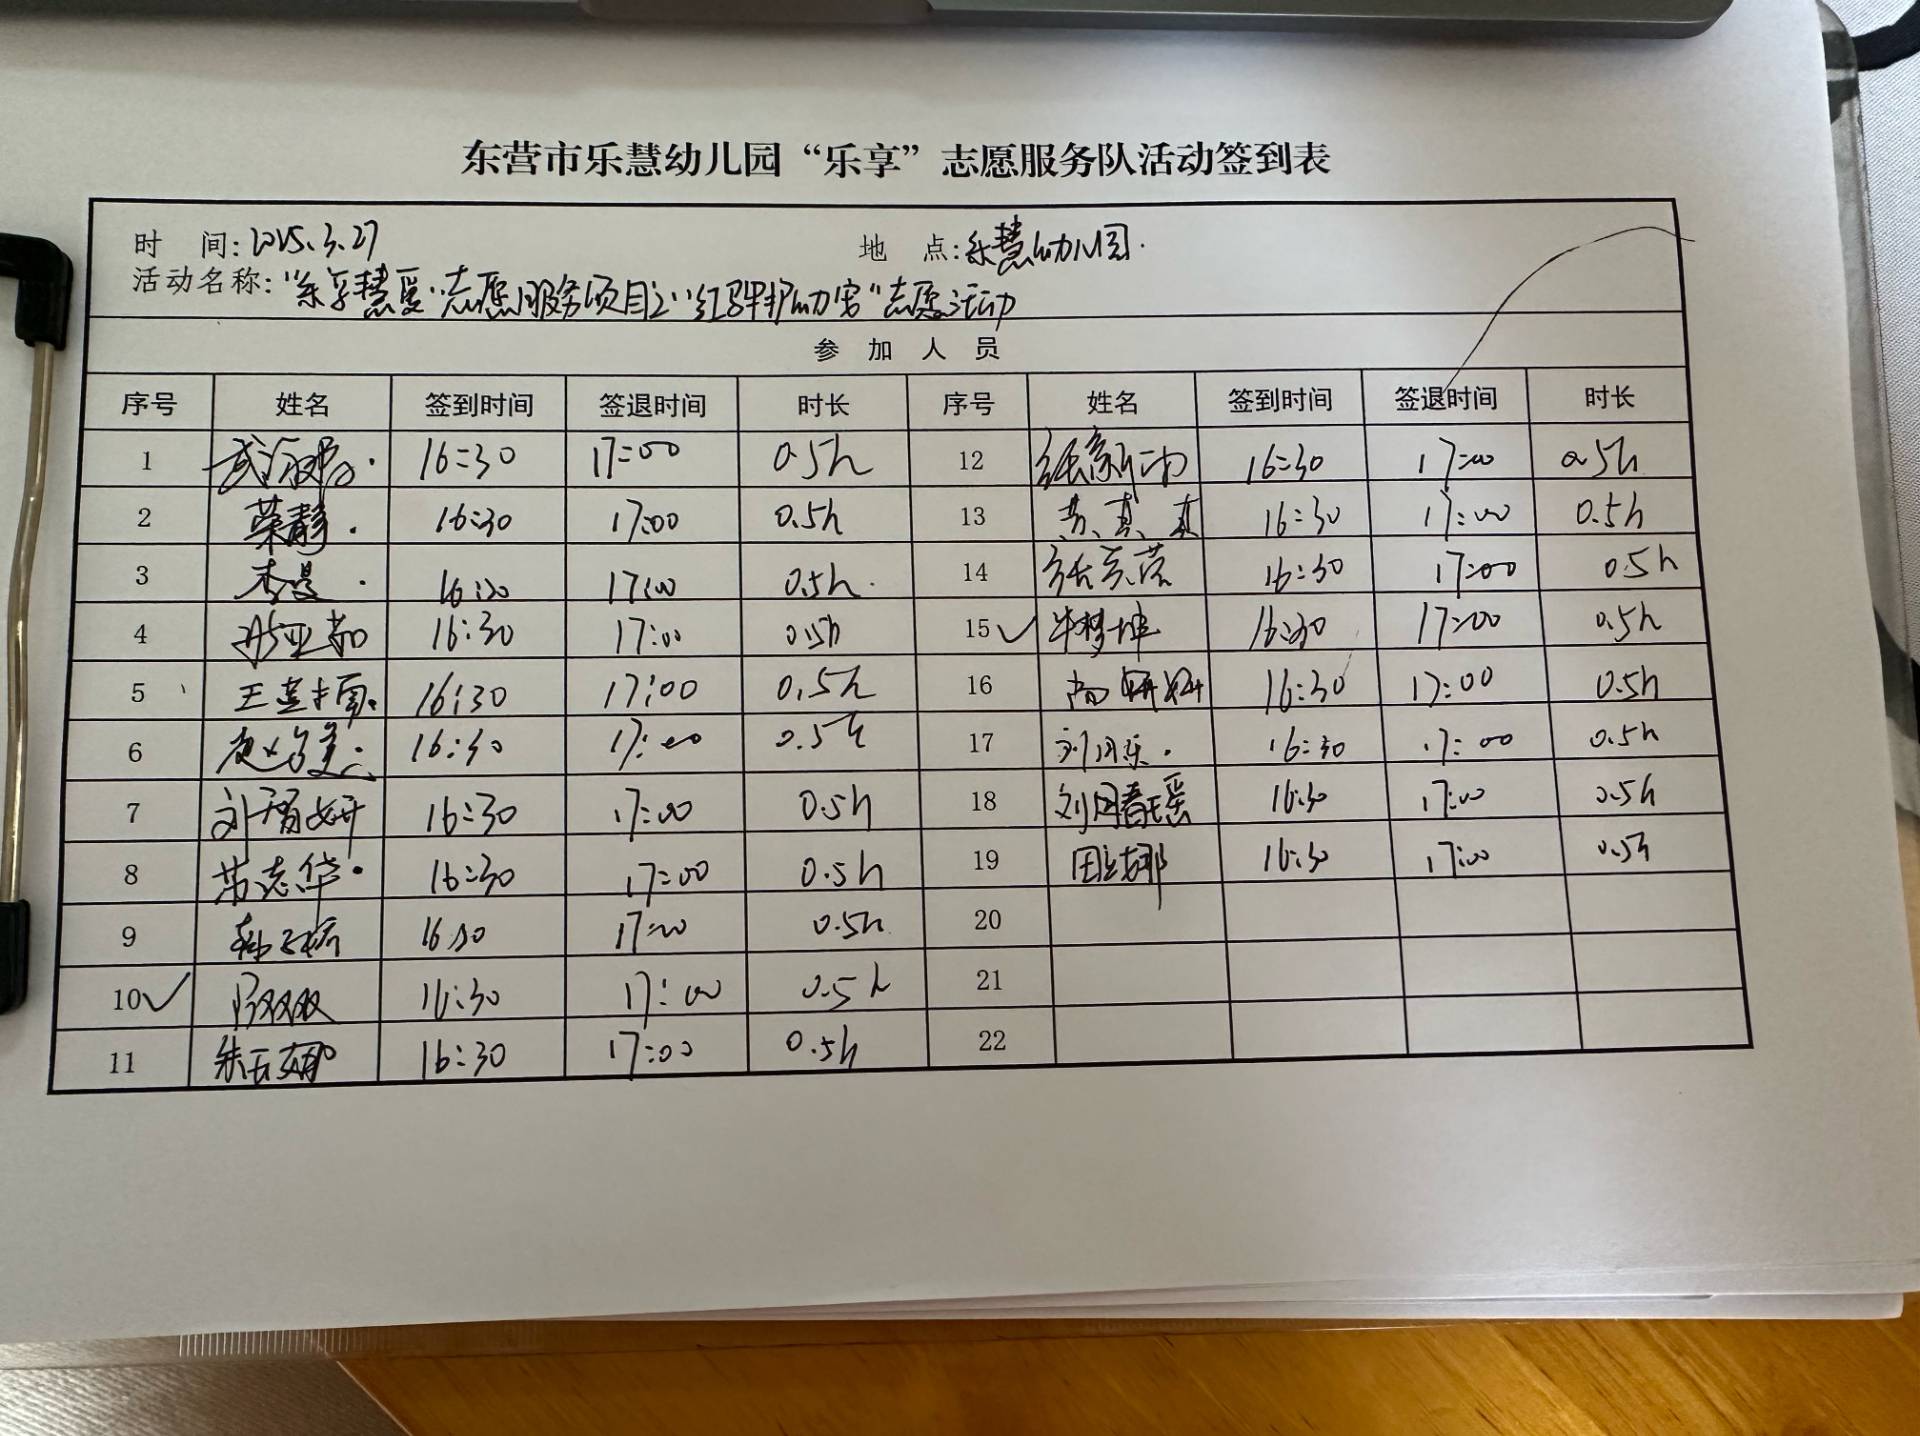 东营市乐慧幼儿园“乐享”志愿服务队活动签到表
时 间: 2025.3.27 地 点: 乐慧幼儿园.
活动名称: “乐享慧爱”志愿服务项目之“红驿护幼客”志愿活动
参 加 人 员
序号 姓名 签到时间 签退时间 时长 序号 姓名 签到时间 签退时间 时长
1 16:30 17:00 0.5h 12 16:30 17:00 0.5h
2 荣静. 16:30 17:00 0.5h 13 苏真真 16:30 17:00 0.5h
3 李曼. 16:30 17:00 0.5h. 14 16:30 17:00 0.5h
4 16:30 17:00 0.5h 15 牛梦坤 16:30 17:00 0.5h
5 王 16:30 17:00 0.5h 16 尚妍妍 16:30 17:00 0.5h
6 赵 16:30 17:00 0.5h 17 刘 16:30 17:00 0.5h
7 刘 妍 16:30 17:00 0.5h 18 刘 16:30 17:00 0.5h
8 苏志华. 16:30 17:00 0.5h 19 田 娜 16:30 17:00 0.5h
9 16:30 17:00 0.5h 20
10 双双 16:30 17:00 0.5h 21
11 朱 娜 16:30 17:00 0.5h 22